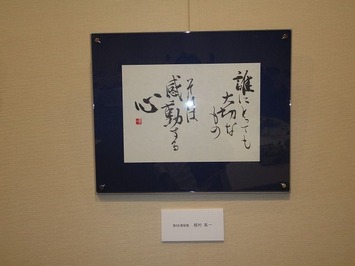 誰にとっても
大切な
もの
それは
感動する
心